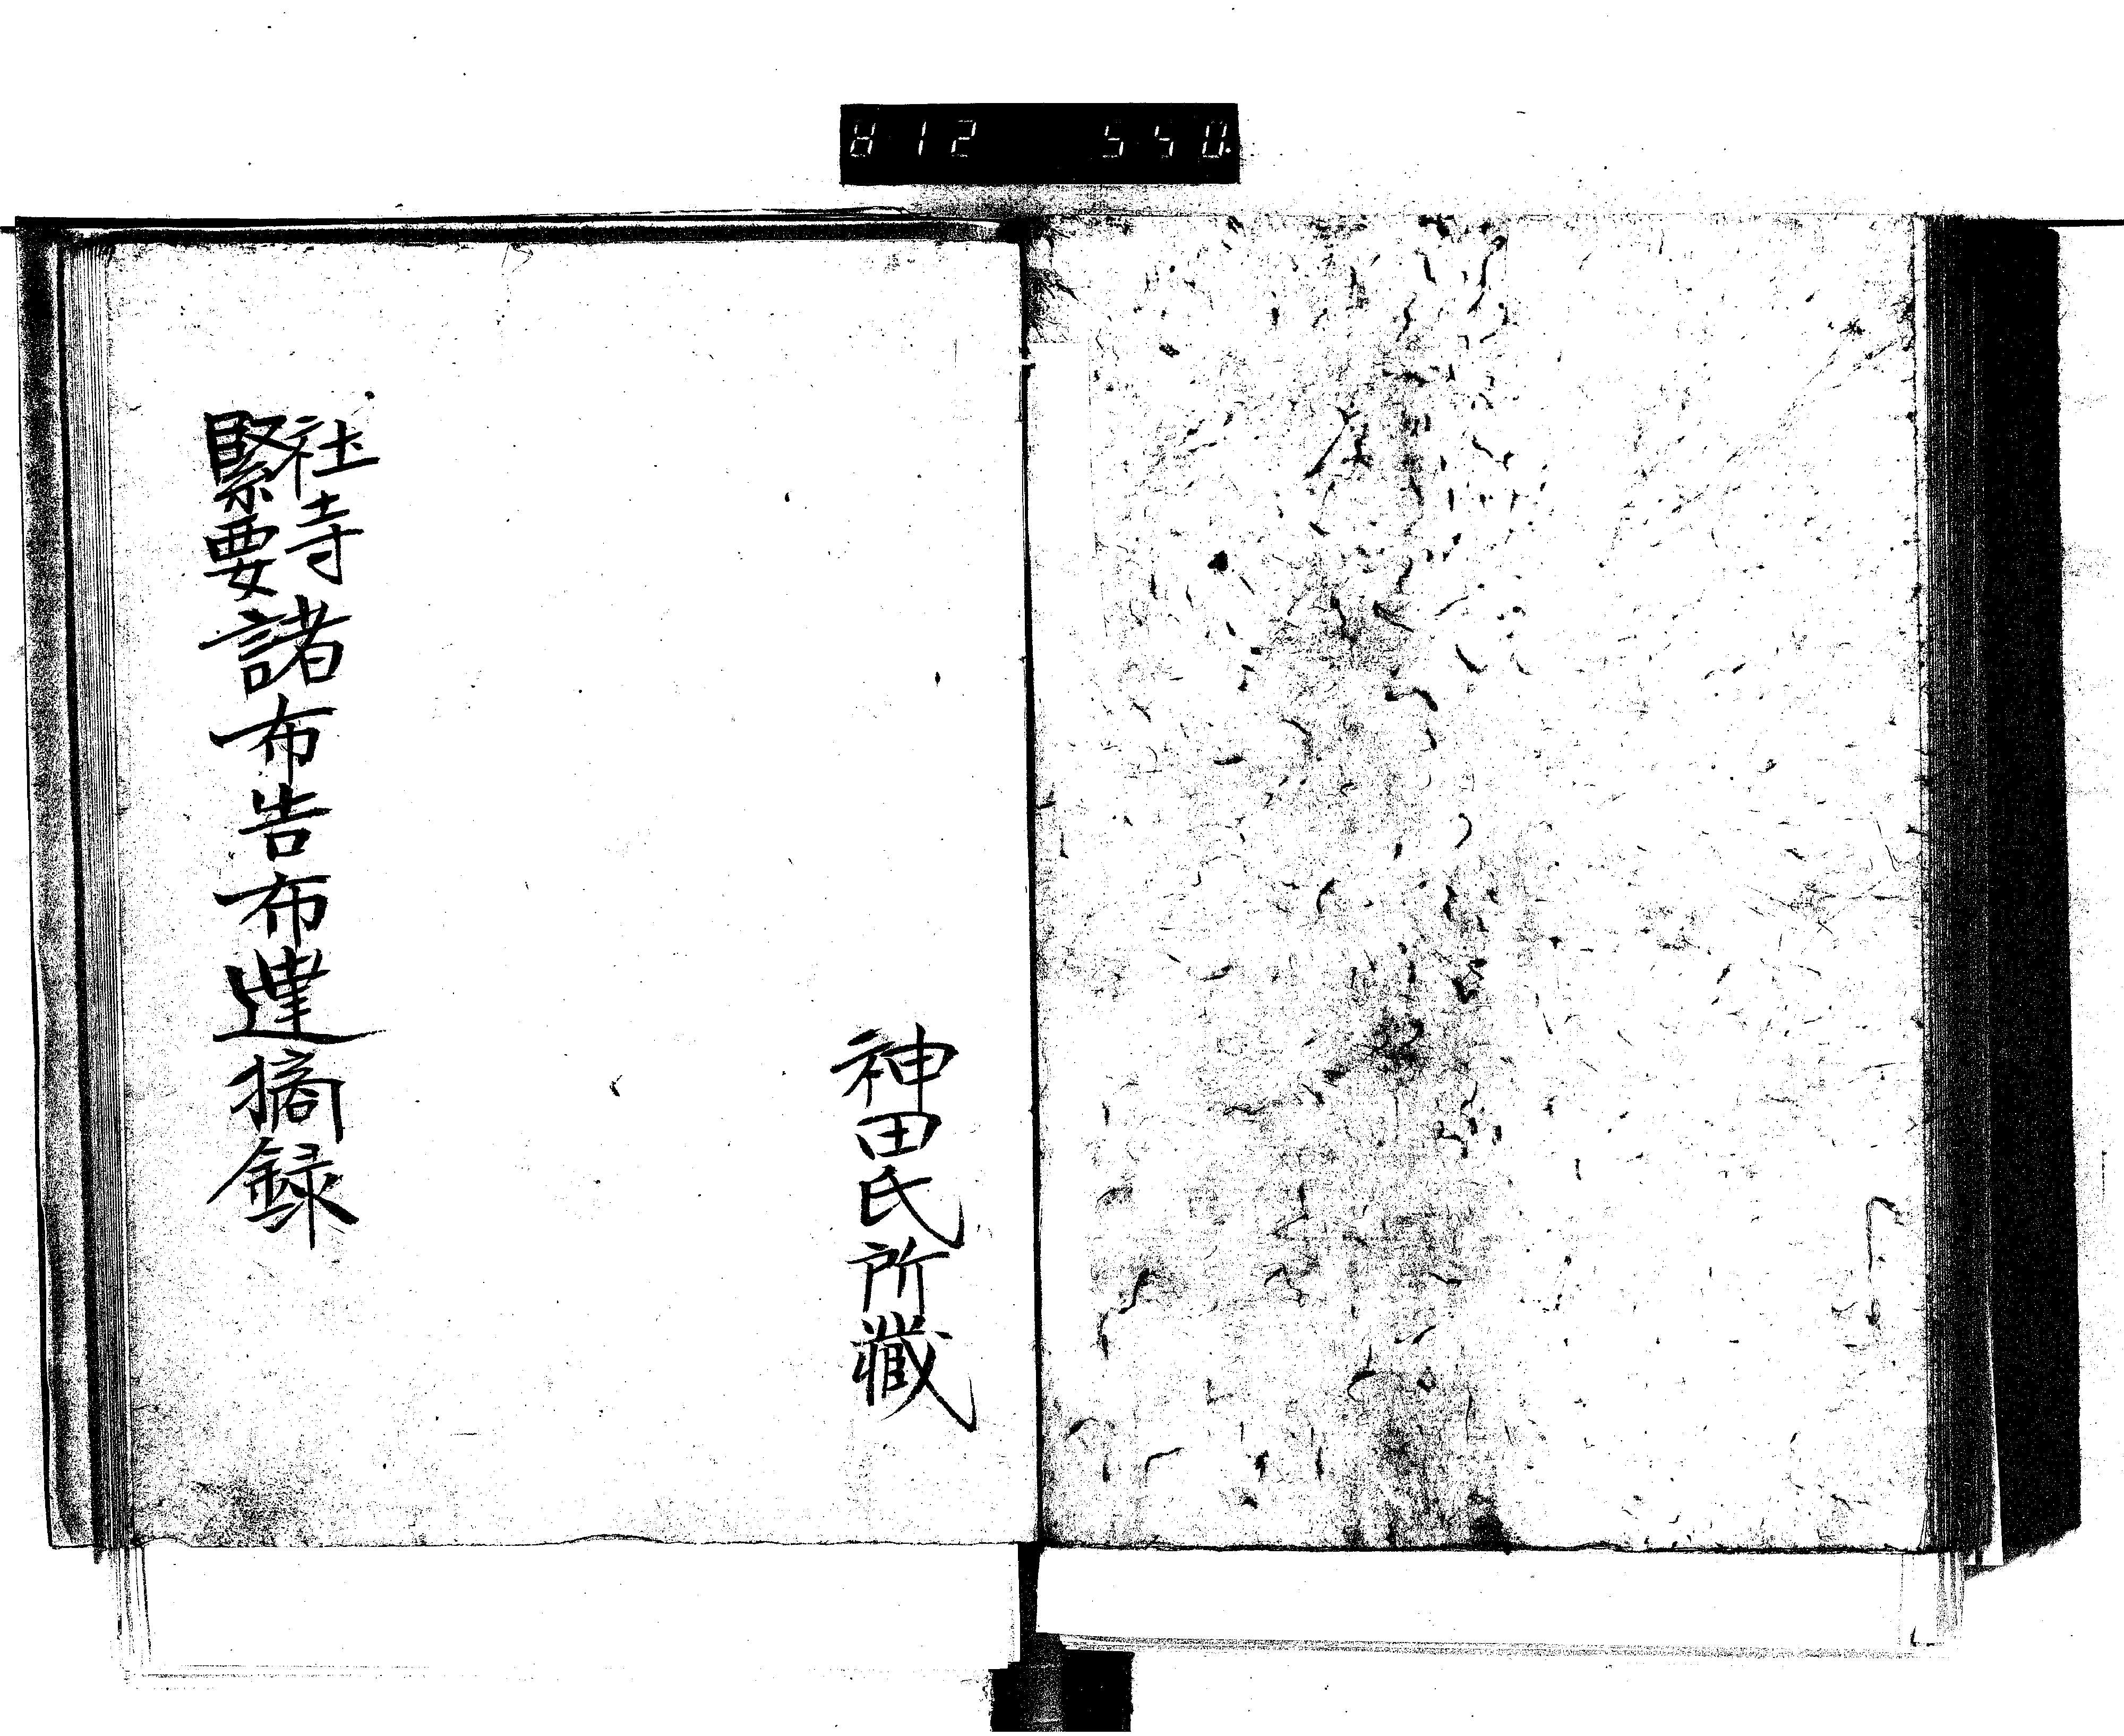 812 550
神田氏所藏
社寺
緊要
諸布告布達摘録